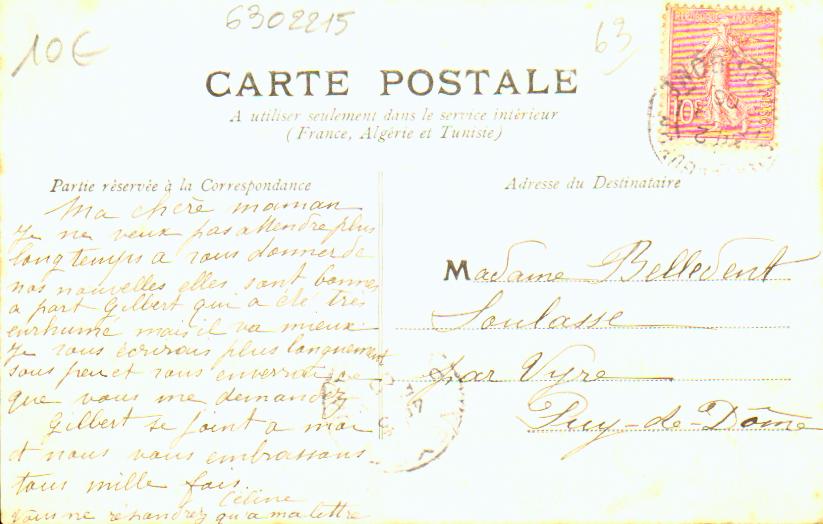 6302215
10€
63
CARTE POSTALE
A utiliser seulement dans le service intérieur
(France, Algérie et Tunisie)
Partie réservée à la Correspondance
Ma chère maman
Je ne veux pas attendre plus
longtemps a vous donner de
nos nouvelles elles sont bonnes
a part Gilbert qui a été très
enrhumé mais il va mieux
Je vous écrirais plus longuement
sous peu et vous enverrai ce
que vous me demandez
Gilbert se joint a moi
et nous vous embrassons
tous mille fois
Céline
Vous ne répondrez qu'a ma lettre
Adresse du Destinataire
Madame Belledent
Soulasse
par Vyre
Puy-de-Dôme